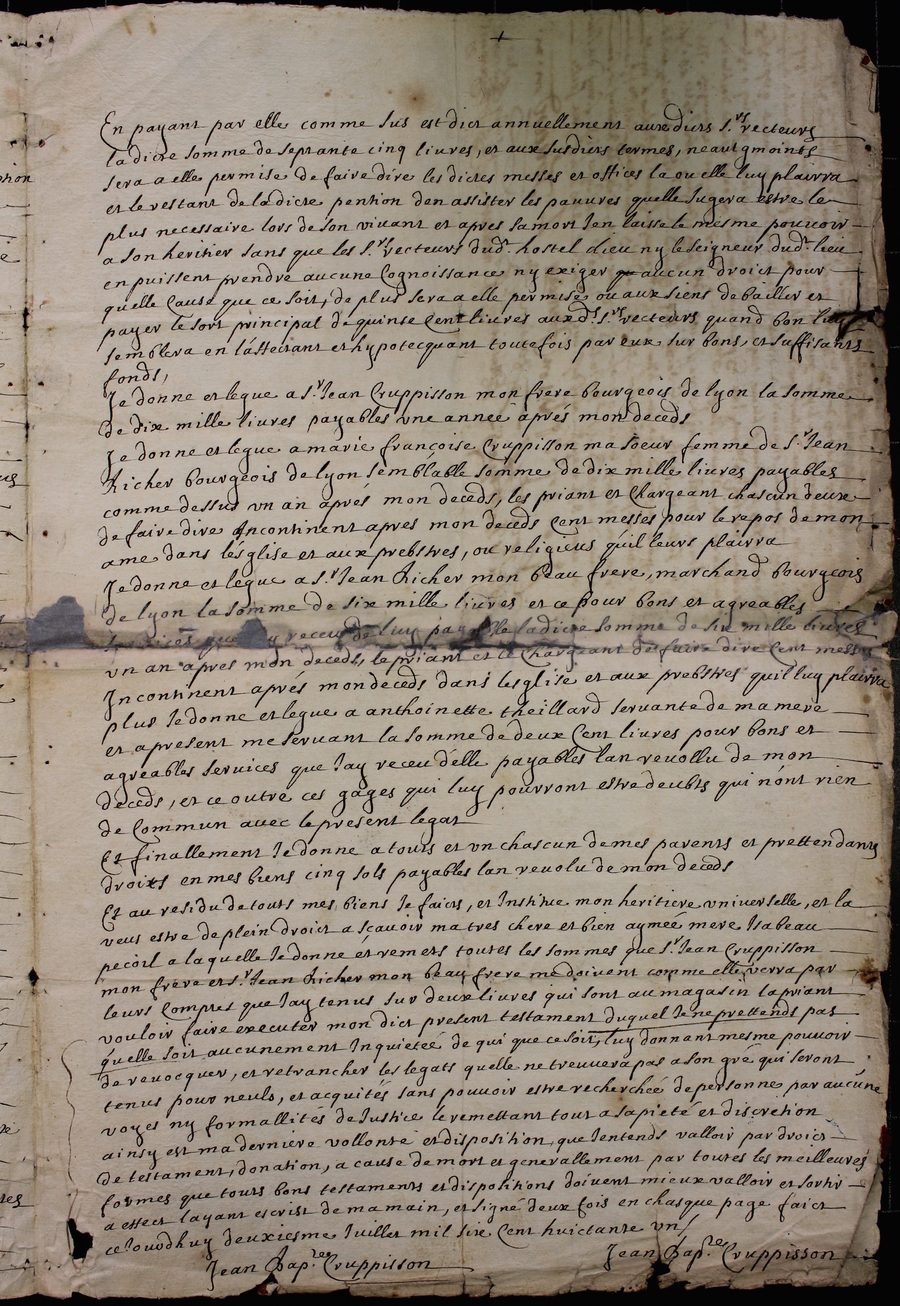 En payant par elle comme sus est dict annuellement auxdicts s.rs recteurs
ladicte somme de septante cinq livres, et aux susdicts termes, neautgmoints
sera a elle permise de faire dire les dictes messes et offices la ou elle luy plairra
et le restant de ladicte pention den assister les pauvres quelle Jugera estre le
plus necessaire lors de son vivant et apres sa mort Jen laisse le mesme pouvoir
a son heritier sans que les s.rs recteurs dud.t hostel dieu ny le seigneur dud.t lieu
en puissent prendre aucune Cognoissance ny exiger aucun droict pour
quelle Cause que ce soit, de plus sera a elle permise ou aux siens de bailler et
payer le sort principal de quinse Cent livres aux d.s s.rs recteurs quand bon luy
semblera en l'asseirant et hypotecquant toutefois par eux sur bons, et suffisants
fonds,
Je donne et legue a s.r Jean Cruppisson mon frere bourgeois de lyon la somme
de dix mille livres payables une anneé aprés mon deceds
Je donne et legue a marie françoise Cruppisson ma soeur femme de s.r Jean
Richer bourgeois de lyon semblable somme de dix mille livres payables
comme dessus un an aprés mon deceds, les priant et Chargeant chascun deux
de faire dire Incontinent apres mon deceds Cent messes pour le repos de mon
ame dans lésglise et aux prebstres, ou religieus quil leurs plairra
Je donne et legue a s.r Jean Richer mon beau frere, marchand bourgeois
de lyon la somme de six mille livres et ce pour bons et agreables
services que Jay receu de luy payable ladicte somme de six mille livres
un an apres mon deceds, le priant et le Chargeant de faire dire Cent messes
Incontinent aprés mon deceds dans lesglise et aux prebstres quil luy plairra
plus Je donne et legue a anthoinette theillard servante de ma mere
et apresent me servant la somme de deux Cent livres pour bons et
agreables services que Jay receu délle payables lan revollu de mon
deceds, et ce outre ces gages qui luy pourront estre deubts qui nónt rien
de Commun avec le present legat
Et finallement Je donne a touts et un chascun de mes parents et prettendants
droixts en mes biens cinq sols payables lan revolu de mon deceds
Et au residu de touts mes biens Je faicts, et Institue mon heritiere universelle, et la
veus estre de plein droict a sçavoir ma tres chere et bien ayméé mere Isabeau
pecoil a laquelle Je donne et remets toutes les sommes que s.r Jean Cruppisson
mon frere et s.r Jean Richer mon beau frere me doivent comme elle verra par
leurs Comptes que Jay tenus sur deux livres qui sont au magasin la priant
vouloir faire executer mon dict present testament duquel Je ne prettends pas
qu'elle soit aucunement Inquietée de qui que ce soit, luy donnant mesme pouvoir
de revocquer, et retrancher les legats quelle ne treuvera pas a son gré qui seront
tenus pour neuls, et acquités sans pouvoir estre recherchéé de personne par aucune
voyes ny formallités de Justice le remettant tout a sa pieté et discretion
ainsy est ma derniere vollonté et disposition que Jentends valloir par droict
de testament, donation, a cause de mort et generallement par toutes les meilleures
formes que touts bons testaments et dispositions doivent mieux valloir et sortir
a effect layant escrist de ma main, et signé deux fois en chasque page faict
ce Jourdhuy deuxiesme Juillet mil six Cent huictante un,
Jean Bap.tee Cruppisson Jean Bap.tee Cruppisson